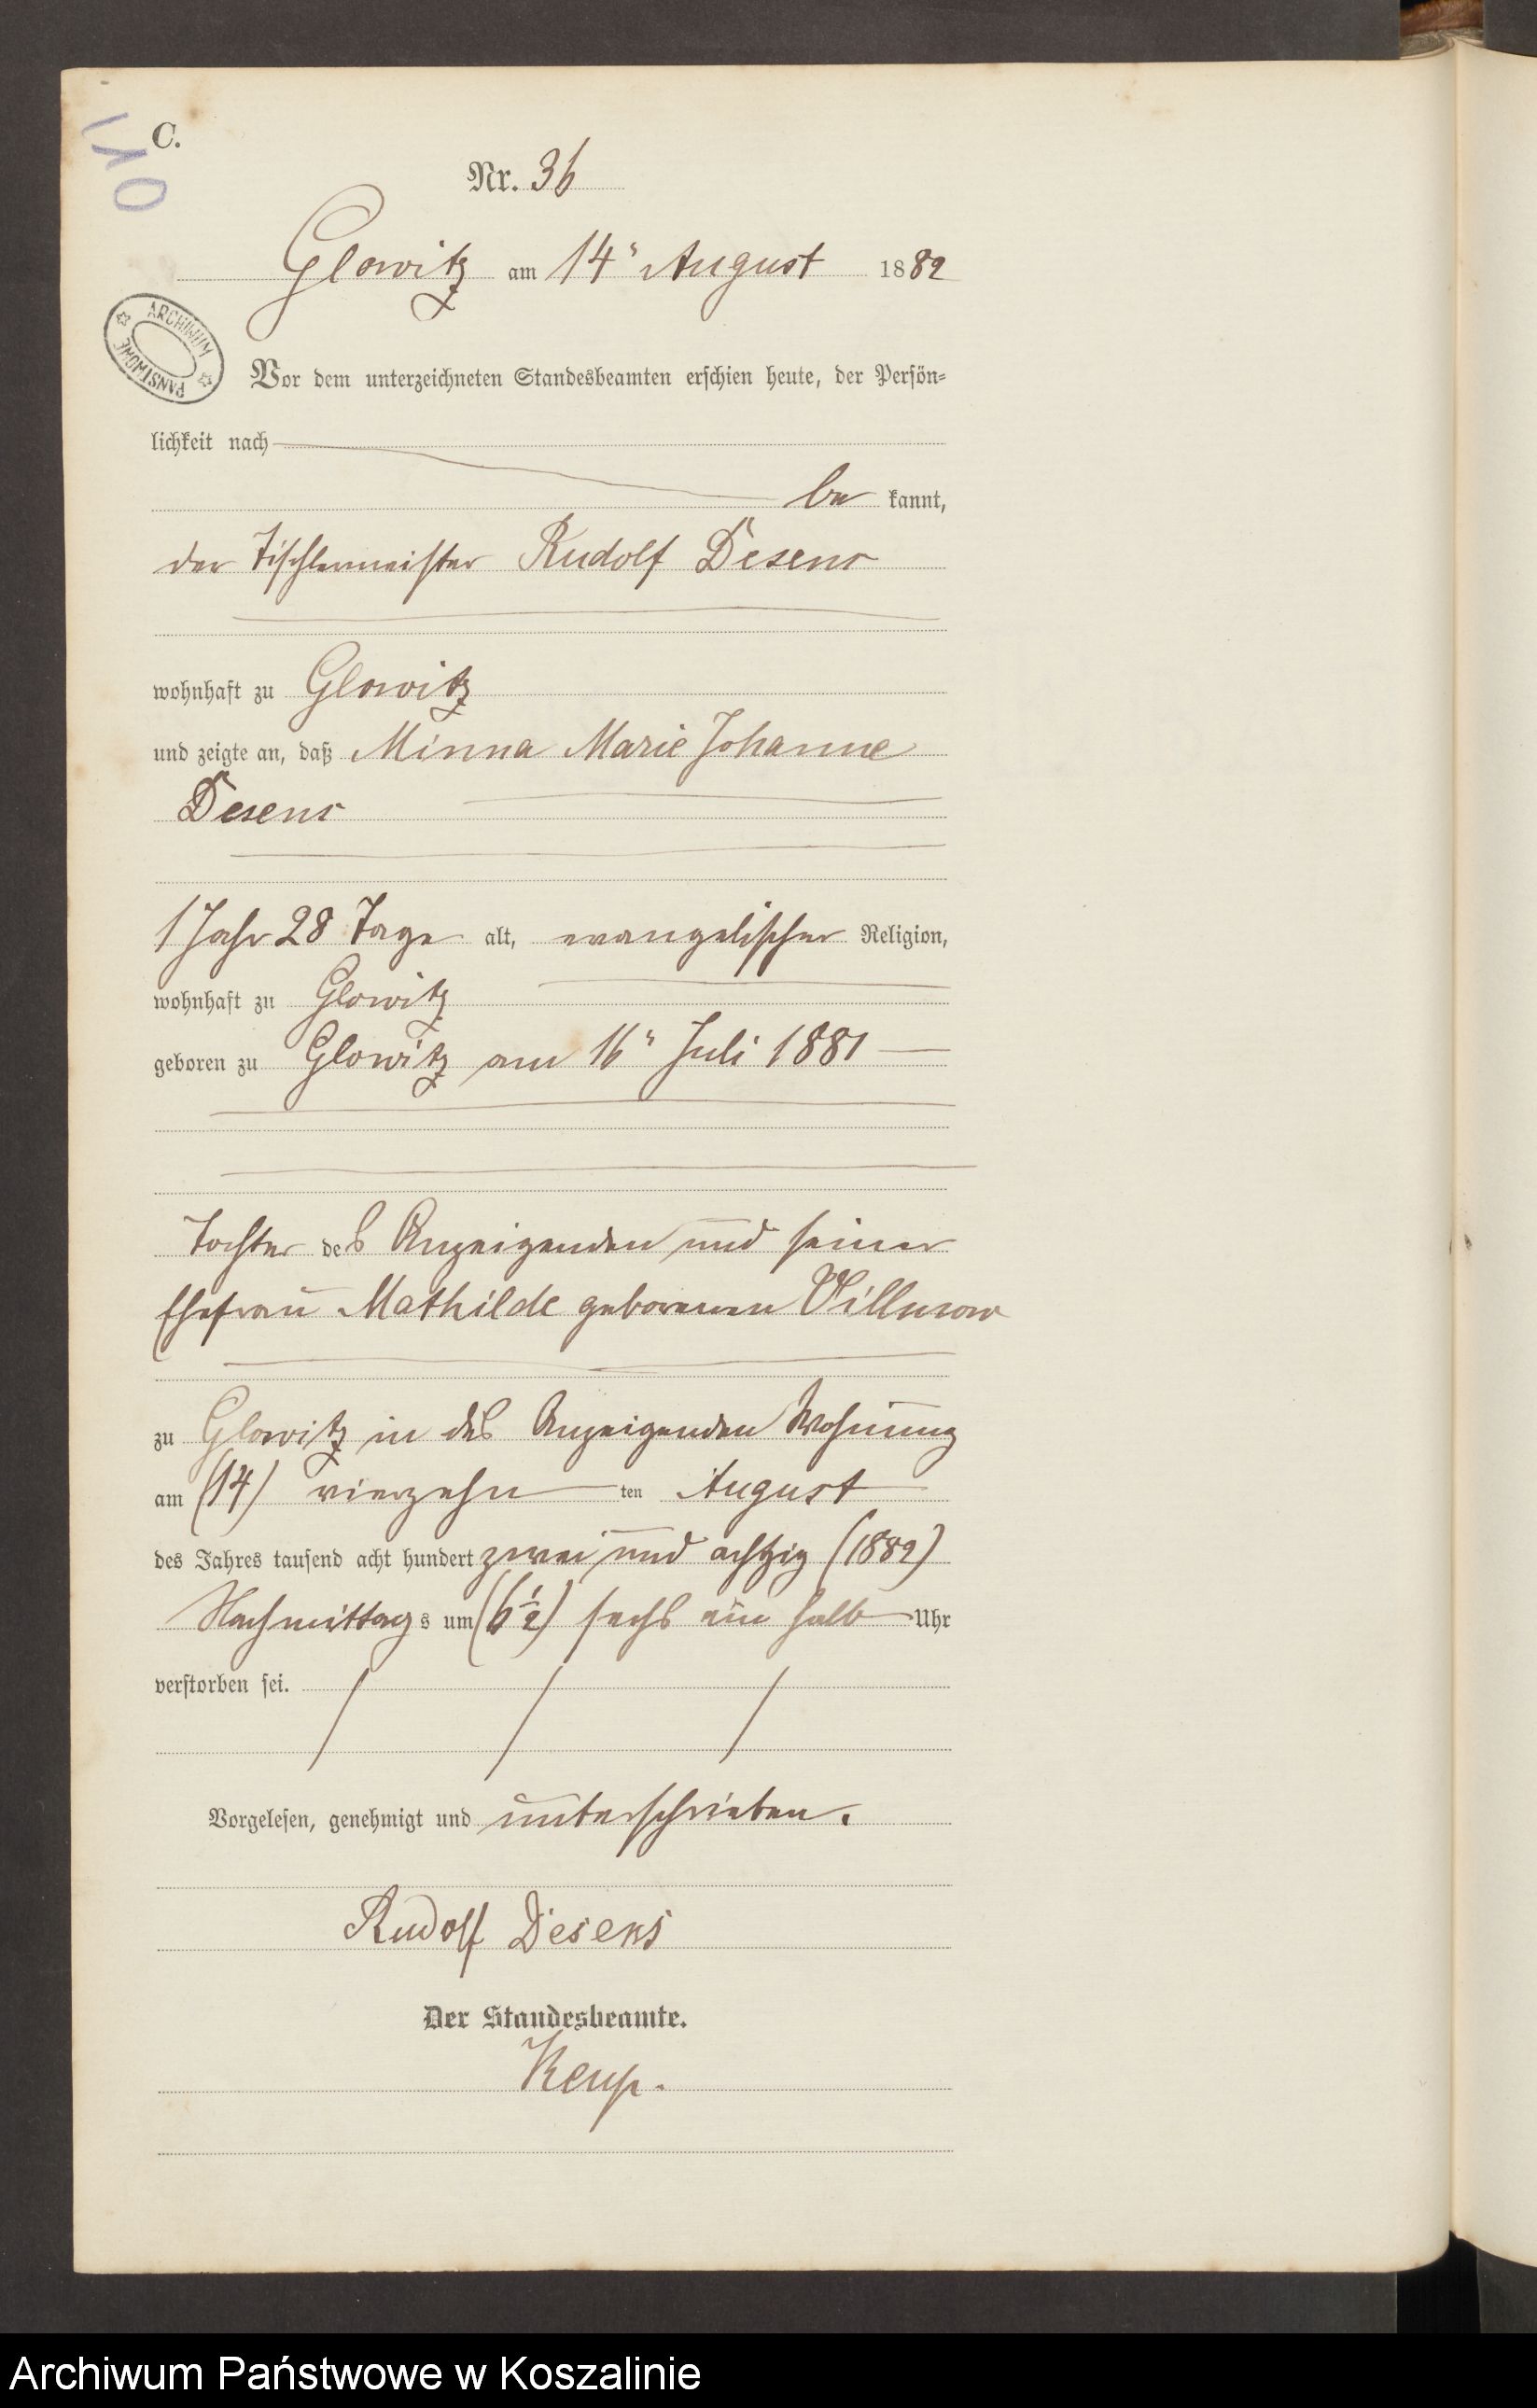 110
C.
Nr. 36
Glowitz am 14" August 1882
ARCHIWUM PAŃSTWOWE
Vor dem unterzeichneten Standesbeamten erschien heute, der Persön=
lichkeit nach
be kannt,
der Tischlermeister Rudolf Desens
wohnhaft zu Glowitz
und zeigte an, daß Minna Marie Johanne
Desens
1 Jahr 28 Tage alt, evangelischer Religion,
wohnhaft zu Glowitz
geboren zu Glowitz am 16" Juli 1881
Tochter des Anzeigenden und seiner
Ehefrau Mathilde geborenen Villnow
zu Glowitz in des Anzeigenden Wohnung
am (14) vierzehn ten August
des Jahres tausend acht hundert zwei und achtzig (1882)
Nachmittags um (6 1/2) sechs ein halb Uhr
verstorben sei.
Vorgelesen, genehmigt und unterschrieben.
Rudolf Desens
Der Standesbeamte.
Keup.
Archiwum Państwowe w Koszalinie